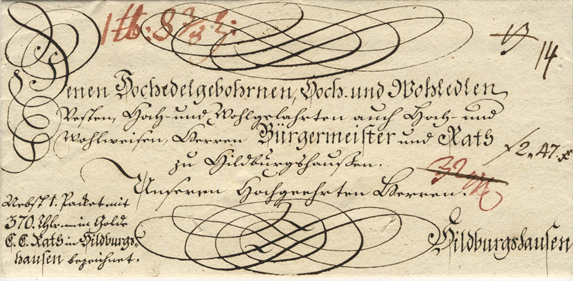 1 ℔. 8
14
Denen Hochedelgebohrnen, Hoch- und Wohledlen
Vesten, Hoch- und Wohlgelahrten auch Hoch- und
Wohlweisen, Herren Bürgermeister und Rath
zu Hildburgshaussen.
Unseren Hochgeehrten Herren.
2„47.
32
Nebst 1. Packet mit
370. Thlr. in Golde
E. E. Rath in Hildburgs-
hausen bezeichnet.
Hildburgshausen